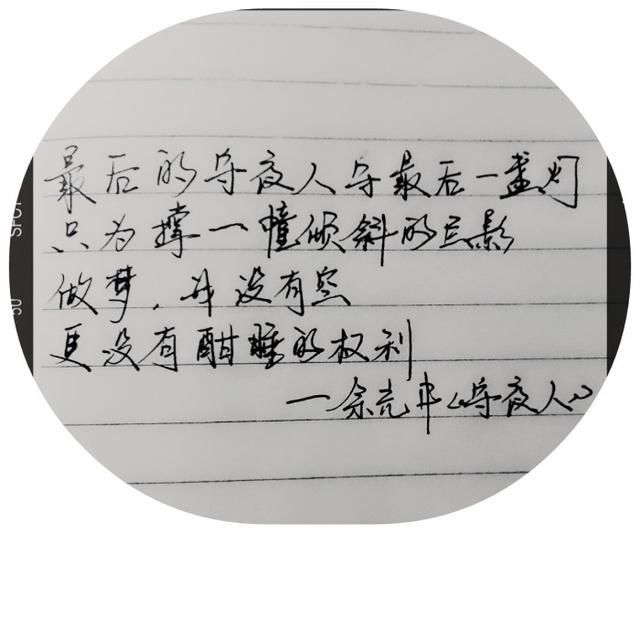 最后的守夜人守最后一盏灯
只为撑一幢倾斜的巨影
做梦，我没有空
更没有酣睡的权利
—余光中《守夜人》